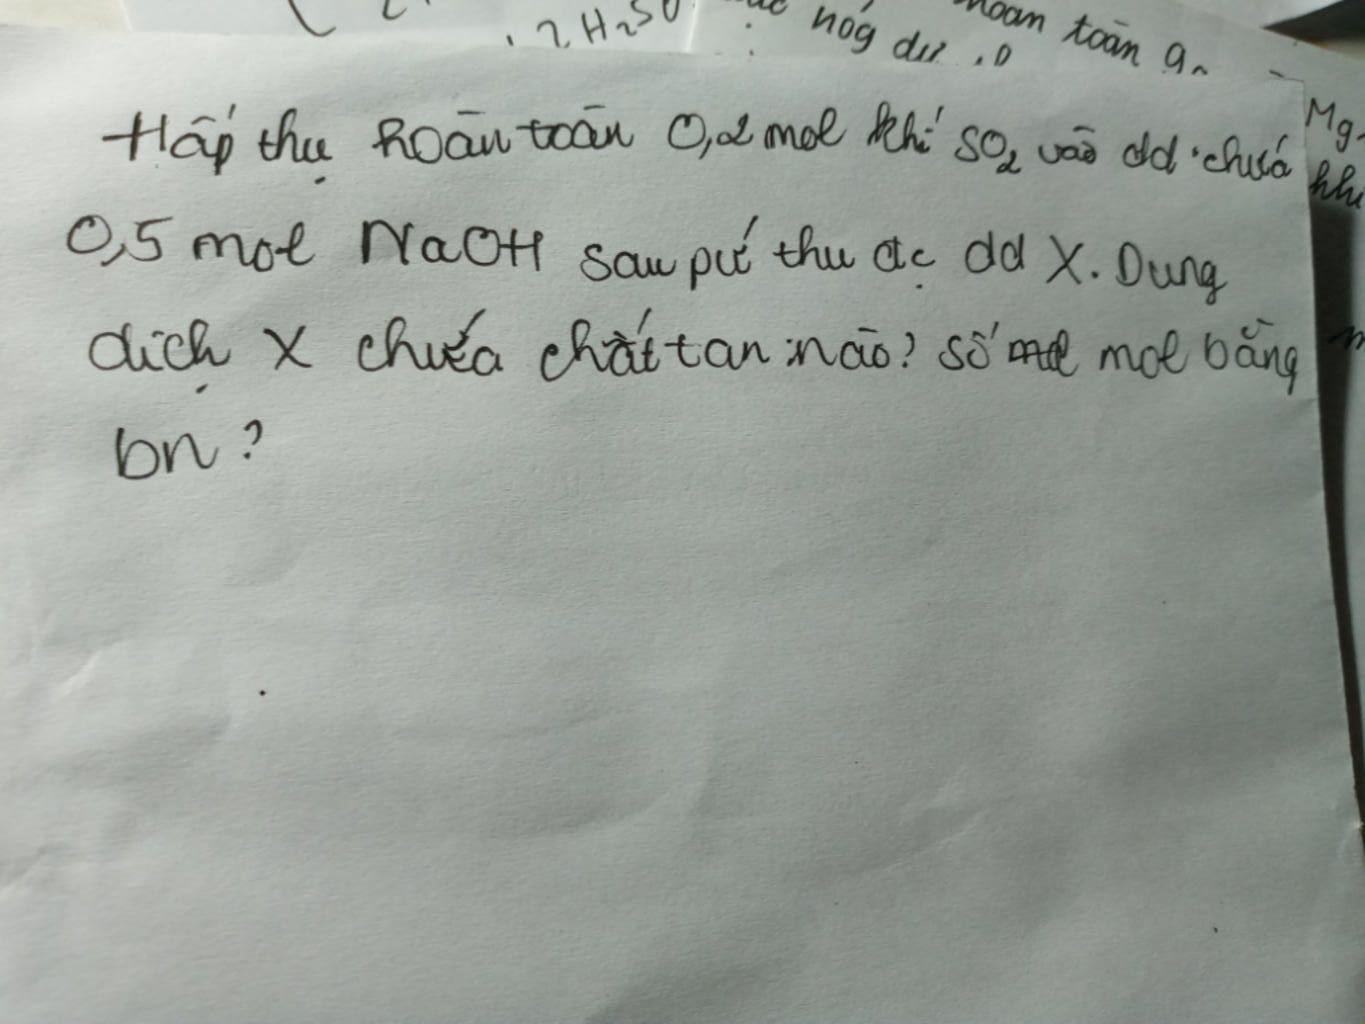 2H2SO
nóg dư
hoàn toàn
Mg
khí
Hấp thụ hoàn toàn 0,2 mol khí SO2 vào dd chứa
0,5 mol NaOH sau pứ thu đc dd X. Dung
dịch X chứa chất tan nào? số mol bằng
bn?